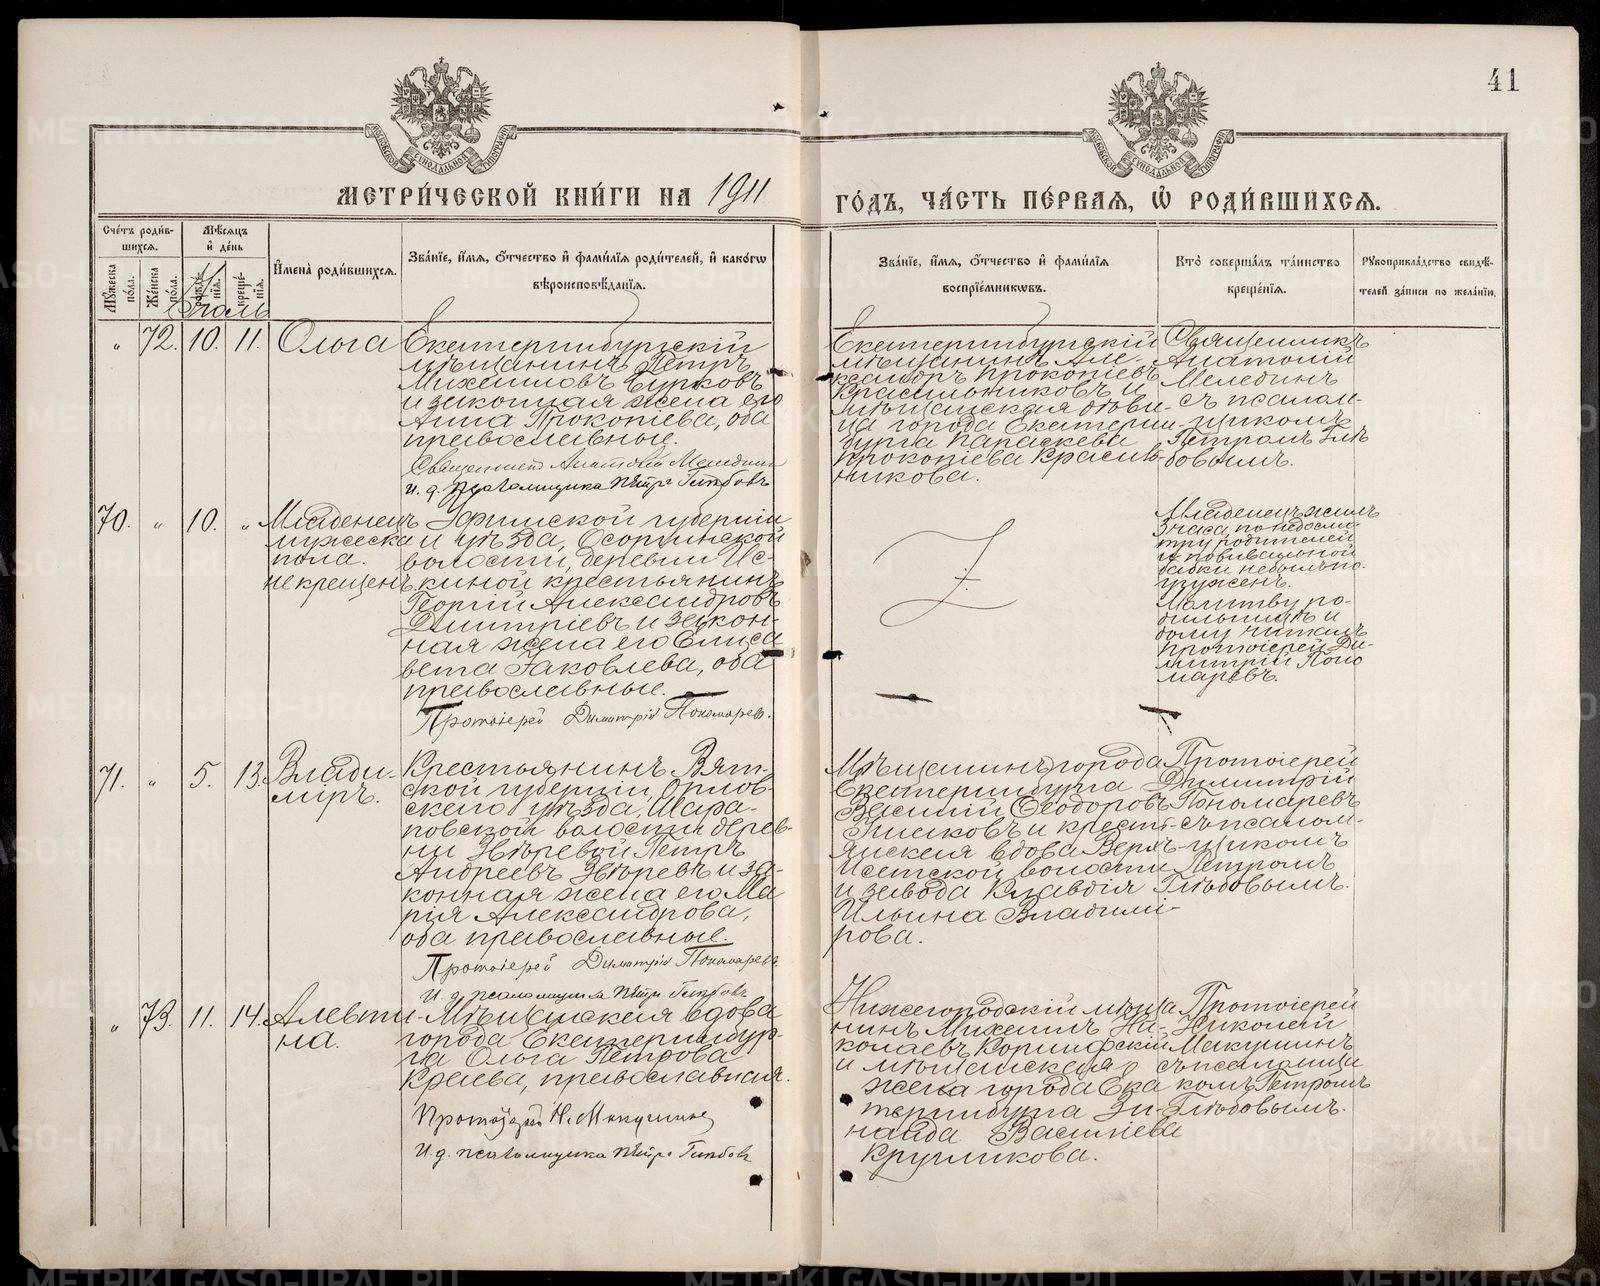 41
МЕТРИ́ЧЕСКОЙ КНИ́ГИ НА 1911
ГО́ДЪ, ЧА́СТЬ ПЕ́РВАЯ, Ѡ҆ РОДИ́ВШИХСЯ.
Сче́тъ роди́в-
шихся.
Мѣ́сяцъ
и҆ де́нь
И҆мена̀ роди́вшихся.
Зва́нїе, и҆́мя, ѻ҆́тчество и҆ фами́лїя роди́телей, и҆ како́гѡ
вѣроисповѣ́данїя.
Зва́нїе, и҆́мя, ѻ҆́тчество и҆ фами́лїя
воспрїе́мникѡвъ.
Кто̀ соверша́лъ та́инство
креще́нїя.
Рꙋкоприкла́дство свидѣ́-
телей за́писи по жела́нїю.
Мꙋ́жеска
по́ла.
Же́нска
по́ла.
рожде́-
нїя.
креще́-
нїя.
„ 72. 10. 11. Ольга
Екатеринбургскій
мѣщанинъ Петръ
Михаиловъ
и законная жена его
Анна Прокопіева, оба
православные.
Священникъ Анатолій Меледин
И. д. псаломщика Петръ Глѣбовъ
Екатеринбургскій
мѣщанинъ Але-
ксандръ Прокопіевъ
Красильниковъ и
мѣщанская дѣви-
ца города Екатерин-
бурга Параскева
Прокопіева Красиль-
никова.
Священникъ
Анатолій
Мелединъ
съ псалом-
щикомъ
Петромъ Глѣ
бовымъ.
70. „ 10. „
Младенецъ
мужеска
пола.
некрещенъ.
Уфимской губерніи
и уѣзда, Осоргинской
волости, деревни Ис-
киной крестьянинъ
Георгій Александровъ
Дмитріевъ и закон-
ная жена его Елиса
вета Іаковлева, оба
православные.
Протоіерей Димитрій Пономаревъ.
Z
Младенецъ жилъ
3 часа, по недосмо-
тру родителей
и повивальной
бабки небылъ по-
гружен.
Молитву ро-
дильницѣ и
дому читалъ
Протоіерей Ди-
митрій Поно
маревъ.
71. „ 5. 13.
Влади-
міръ.
Крестьянинъ Вят-
ской губерніи, Орлов-
скаго уѣзда, Шара-
повской волости дерев-
ни Звѣревой Петръ
Андреевъ Звѣревъ и за-
конная жена его Ма
рія Александрова,
оба православные.
Протоіерей Димитрій Пономаревъ
И. д. псаломщика Петръ Глѣбовъ
Мѣщанинъ города
Екатеринбурга
Василій Ѳеодоровъ
и крестъ-
янская вдова Верхъ-
Исетской волости
и завода Клавдія
Ильина Владимі-
рова.
Протоіерей
Димитрій
Пономаревъ
съ псалом-
щикомъ
Петромъ
Глѣбовымъ.
„ 73. 11. 14.
Алевти
на.
Мѣщанская вдова
города Екатеринбур-
га Ольга Петрова
Краева, православная.
Протоіерей Н. Макушинъ
И. д. псаломщика Петръ Глѣбовъ
Нижегородскій мѣща
нинъ Михаилъ Ни-
колаевъ Коринфскій
и мѣщанская
жена города Ека
теринбурга Зи-
наида Васіліева
Кругликова.
Протоіерей
Николай
Макушинъ
съ псаломщи
комъ Петромъ
Глѣбовымъ.